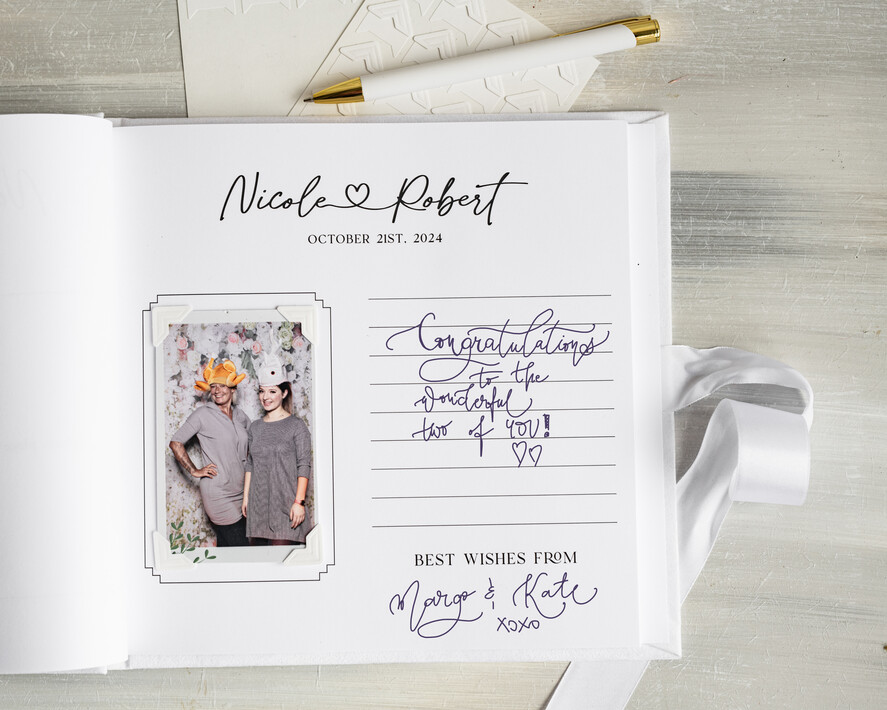 Nicole Robert
OCTOBER 21ST, 2024
Congratulations
to the
wonderful
two of YOU!
BEST WISHES FROM
Margo & Kate
xoxo